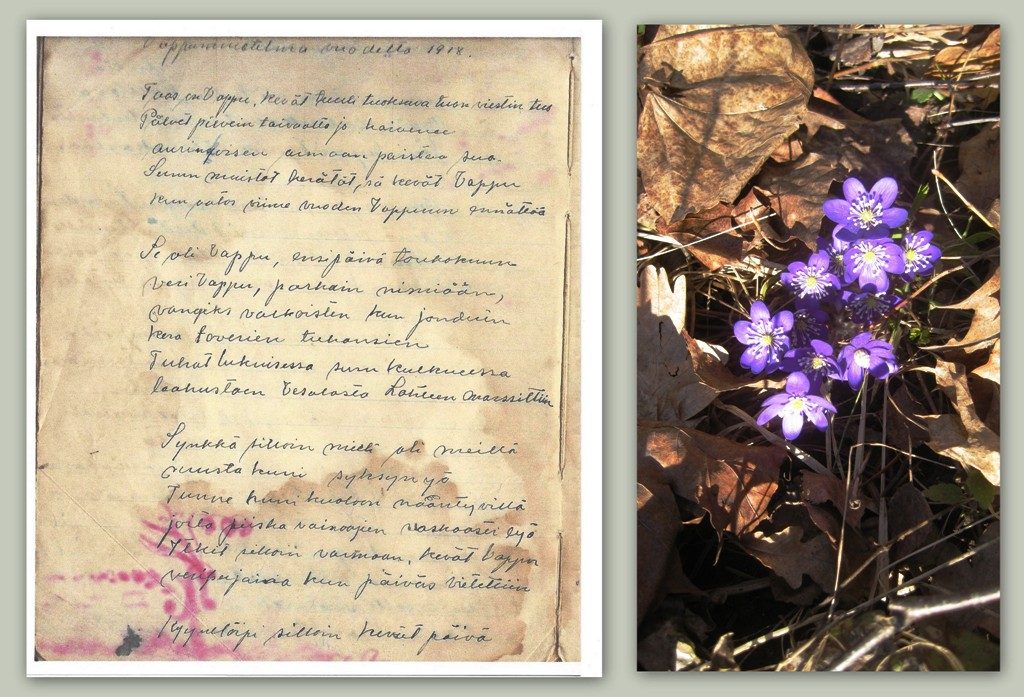 Vappumuistelma vuodelta 1918.
Taas on Vappu, kevät tuoksuva tuon viestin
Pilvet taivaalta jo
auringossen paistaa suo.
Sinun muistot herätät, sä kevät Vappu
kun viime vuoden Vappuun
Se oli Vappu, ensipäivä toukokuun
veri Vappu, parhain nimiään,
vangiks valkoisten kun jouduin
kera toverien tuhansien
Tuhat lukuisessa surukulkueessa
laahustain Vesalasta Lahteen marssittiin
Synkkä silloin mieli oli meillä
musta kuni syksyn yö
Tunne kuni kuoloon nääntyvillä
joita piiska vainoojien raskaasti lyö
Itkit silloin varmaan, kevät Vappu
veripäjäisiä kun päiväs vietettiin
Kyyneltyipi silloin kevät päivä